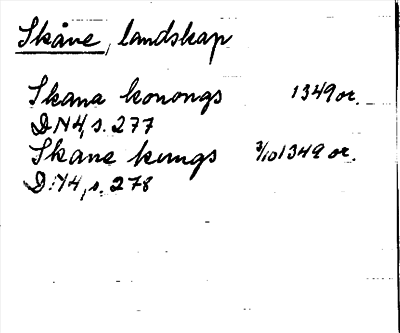 Skåne, landskap
Skana konongs 1349 or.
DN4, s. 277
Skane kungs 3/10 1349 or.
DN4, s. 278